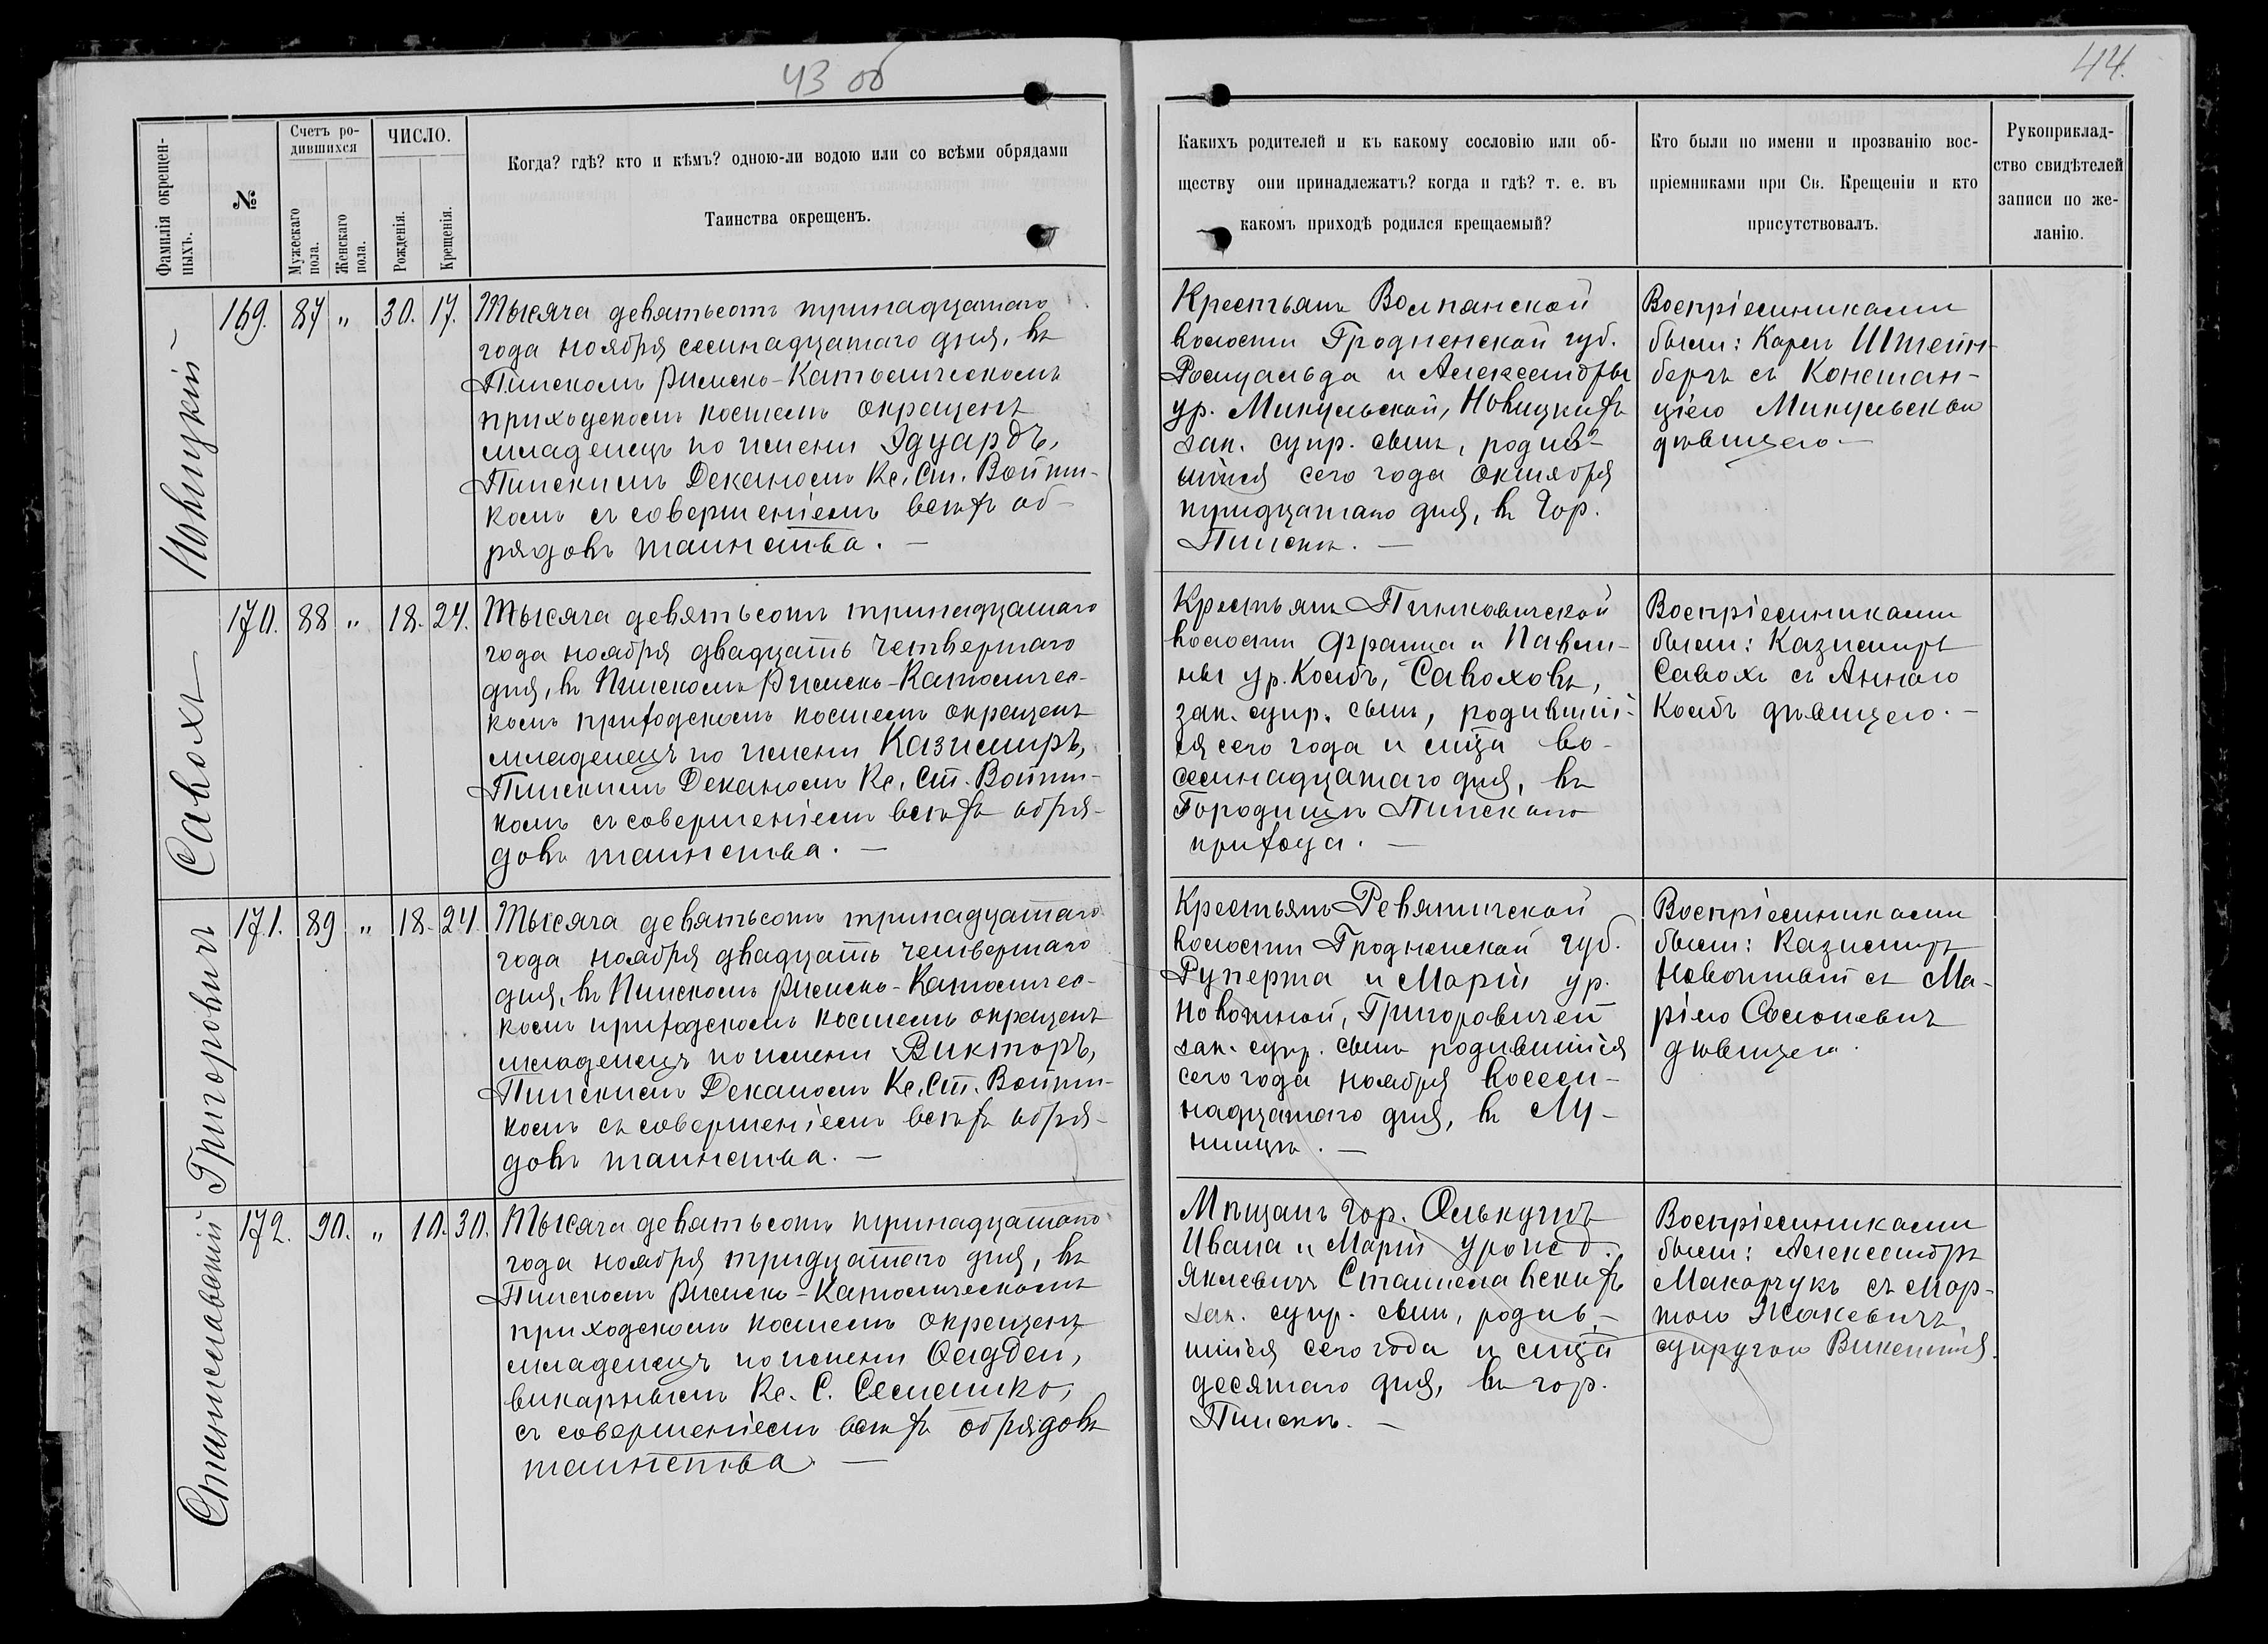 43 об
44.
Фамилія окрещен-
ныхъ.
№
Счетъ ро-
дившихся
Мужескаго
пола.
Женскаго
пола.
ЧИСЛО.
Рожденія.
Крещенія.
Когда? гдѣ? кто и кѣмъ? одною-ли водою или со всѣми обрядами
Таинства окрещенъ.
Какихъ родителей и къ какому сословію или об-
ществу они принадлежатъ? когда и гдѣ? т. е. въ
какомъ приходѣ родился крещаемый?
Кто были по имени и прозванію вос-
пріемниками при Св. Крещеніи и кто
присутствовалъ.
Рукоприклад-
ство свидѣтелей
записи по же-
ланію.
Новицкій
169. 87 " 30. 17.
Тысяча девятьсотъ тринадцатаго
года ноября семнадцатаго дня, въ
Пинскомъ Римско-Католическомъ
приходскомъ костелѣ окрещенъ
младенецъ по имени Эдуардъ,
Пинскимъ Деканомъ Кс. Ст. Войти-
комъ съ совершеніемъ всѣхъ об-
рядовъ таинства. —
Крестьянъ Волпянской
волости Гродненской губ.
Ромуальда и Александры
ур. Микульской, Новицкихъ
зак. супр. сынъ, родив-
шійся сего года октября
тридцатаго дня, въ Гор.
Пинскѣ. —
Воспріемниками
были: Карлъ Штейн-
бергъ съ Констан-
ціею Микульскою
дѣвицею. —
Савохъ
170. 88 " 18. 24.
Тысяча девятьсотъ тринадцатаго
года ноября двадцать четвертаго
дня, въ Пинскомъ Римско-Католичес-
комъ приходскомъ костелѣ окрещенъ
младенецъ по имени Казимиръ,
Пинскимъ Деканомъ Кс. Ст. Войти-
комъ съ совершеніемъ всѣхъ обря-
довъ таинства. —
Крестьянъ Пинковичской
волости Франца и Павли-
ны ур. Колбъ, Савоховъ,
зак. супр. сынъ, родившій-
ся сего года и мѣсца во-
семнадцатаго дня, въ
Городищѣ Пинскаго
прихода. —
Воспріемниками
были: Казимиръ
Савохъ съ Анною
Колбъ дѣвицею. —
Григоровичъ
171. 89 " 18. 24.
Тысяча девятьсотъ тринадцатаго
года ноября двадцать четвертаго
дня, въ Пинскомъ Римско-Католичес-
комъ приходскомъ костелѣ окрещенъ
младенецъ по имени Викторъ,
Пинскимъ Деканомъ Кс. Ст. Войти-
комъ съ совершеніемъ всѣхъ обря-
довъ таинства. —
Крестьянъ Ревятичской
волости Гродненской губ.
Руперта и Маріи ур.
Григоровичей
зак. супр. сынъ родившійся
сего года ноября восем-
надцатаго дня, въ Лу-
нинцѣ. —
Воспріемниками
были: Казимиръ
съ Ма-
ріею
дѣвицею.
Станиславскій
172. 90. " 10. 30.
Тысяча девятьсотъ тринадцатаго
года ноября тридцатаго дня, въ
Пинскомъ Римско-Католическомъ
приходскомъ костелѣ окрещенъ
младенецъ по имени Фаддей,
викарнымъ Кс. С. Семашко,
съ совершеніемъ всѣхъ обрядовъ
таинства —
Мѣщанъ гор. Олькушъ
Ивана и Маріи урожд.
Яклевичъ Станиславскихъ
зак. супр. сынъ, родив-
шійся сего года и мѣсца
десятаго дня, въ гор.
Пинскѣ. —
Воспріемниками
были: Александръ
Макарчукъ съ Мар-
тою
супругою Викентія.